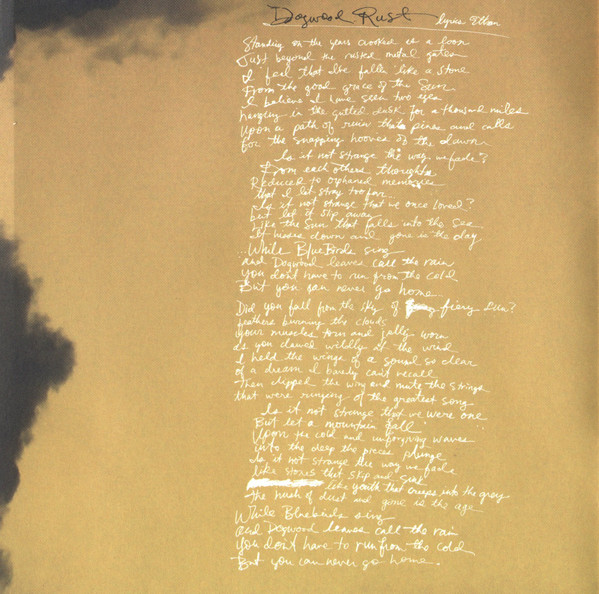 Dogwood Rust
lyrics Ethan
Standing on the years crooked as a loon
Just beyond the rusted metal gates
I feel that I've fallen like a stone
From the good grace of the Sun
I believe I have seen two eyes
hanging in the gutted dusk for a thousand miles
Upon a path of ruin that pines and calls
For the snapping hooves of the dawn
Is it not strange the way we fade?
From each others thoughts
Reduced to orphaned memories
that I let stray too far
Is it not strange that we once loved?
but let it slip away
Like the Sun that falls into the sea
It hisses down and gone is the day
..While BlueBirds sing
and Dogwood leaves call the rain
you don't have to run from the cold
But you can never go home...
Did you fall from the sky of fiery
feathers burning the clouds
your muscles torn and fully worn
as you clawed wildly at the wind
I held the wings of a sound so clear
of a dream I barely can't recall
Then clipped the wing and mute the strings
that were ringing of the greatest song
Is it not strange that we were one
But let a mountain fall
Upon the cold and unforgiving waves
into the deep the pieces plunge
Is it not strange the way we fade
like stones that skip and sink
like youth that creeps into the grey
the hush of dust and gone is the age
While Bluebirds sing
and Dogwood leaves call the rain
you don't have to run from the cold
But you can never go home.